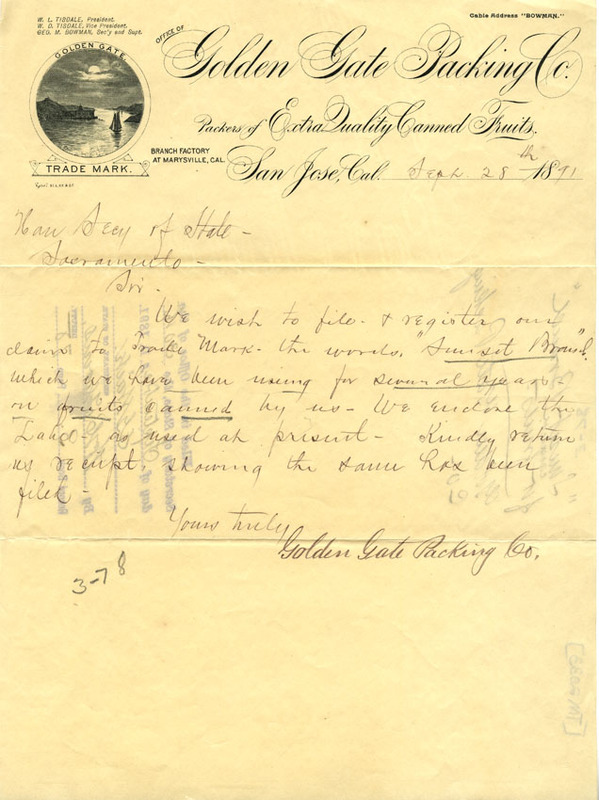 W. L. TISDALE, President.
W. D. TISDALE, Vice President.
GEO. M. BOWMAN, Sec'y and Supt.
Cable Address "BOWMAN."
OFFICE OF
Golden Gate Packing Co.
GOLDEN GATE
TRADE MARK.
Packers of Extra Quality Canned Fruits.
BRANCH FACTORY
AT MARYSVILLE, CAL.
San Jose, Cal. Sept. 28th 1891
Hon Secy of State -
Sacramento -
Sir -
We wish to file - & register our
claim to Trade Mark - the words, "Sunset Brand"
which we have been using for several years -
on fruits canned by us - We enclose the
Label - as used at present - Kindly return
us receipt, showing the same has been
filed -
Yours truly
Golden Gate Packing Co.
3-78